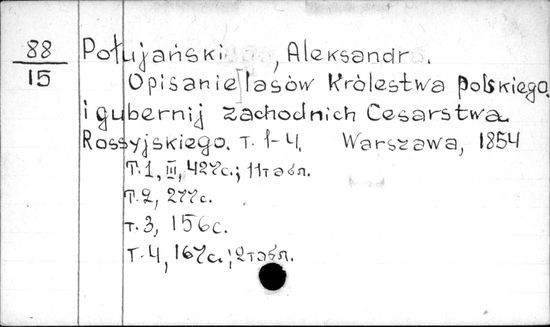 88
15
Połujański, Aleksandr.
Opisanie lasów Królestwa polskiego
i gubernij zachodnich Cesarstwa
Rossyjskiego. т. 1-4. Warszawa, 1854
т.1, III, 427с.; 11табл.
т.2, 277с.
т.3, 156с.
т.4, 167с.; 2табл.